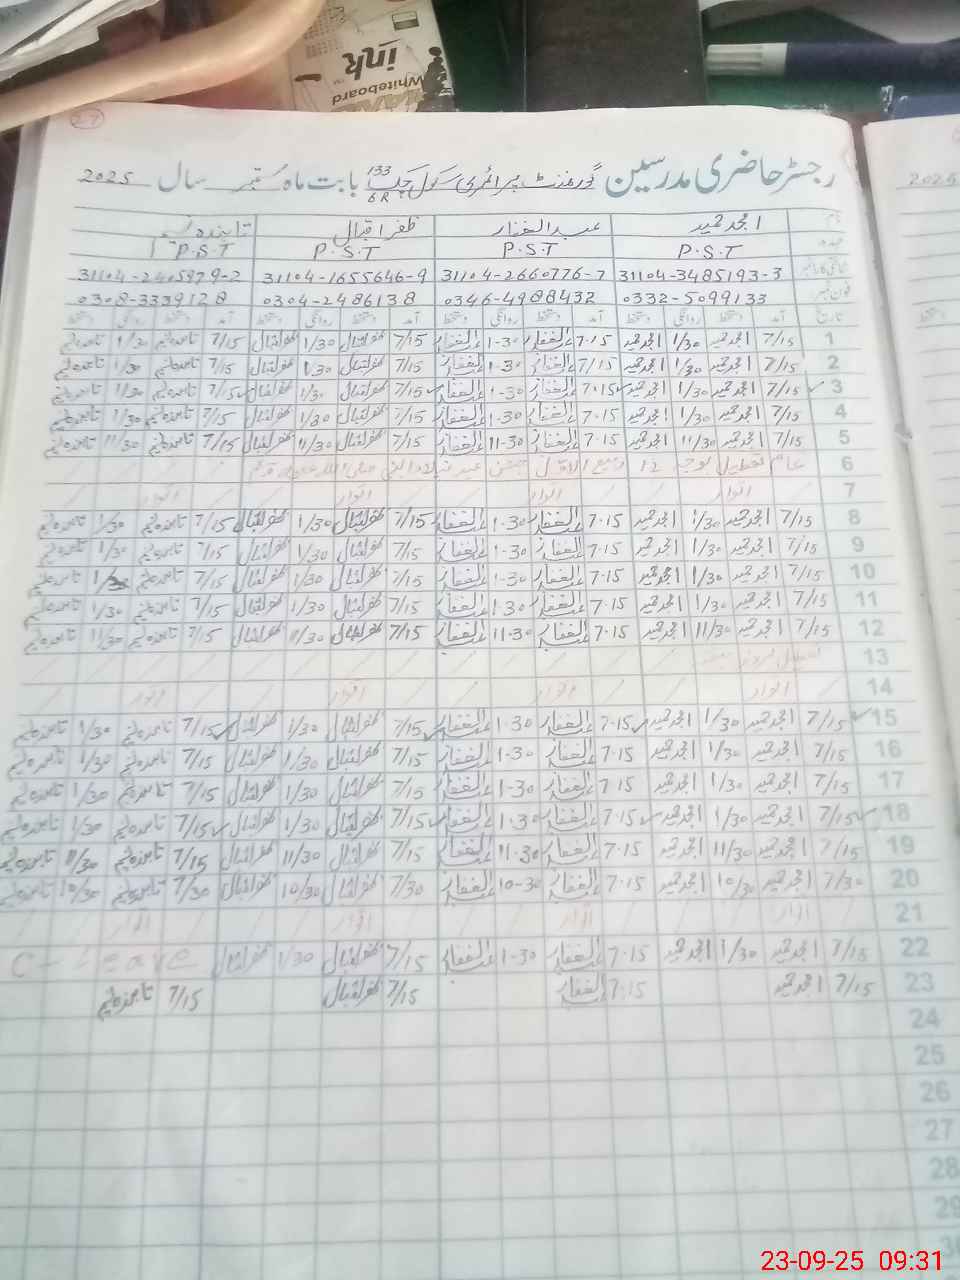 ink
Whiteboard
27
رجسٹر حاضری مدرسین گورنمنٹ پرائمری سکول چک 133/6R بابت ماہ ستمبر سال 2025
نام امجد حمید عبدالغفار ظفر اقبال تابندہ
عہدہ P.S.T P.S.T P.S.T P.S.T
شناختی کارڈ نمبر 31104-3485193-3 31104-2660776-7 31104-1655646-9 31104-2405979-2
فون نمبر 0332-5099133 0346-4988432 0304-2486138 0308-3339128
تاریخ آمد دستخط روانگی دستخط آمد دستخط روانگی دستخط آمد دستخط روانگی دستخط آمد دستخط روانگی دستخط
1 7/15 امجد حمید 1/30 امجد حمید 7-15 عبدالغفار 1-30 عبدالغفار 7/15 ظفر اقبال 1/30 ظفر اقبال 7/15 1/30
2 7/15 امجد حمید 1/30 امجد حمید 7/15 عبدالغفار 1-30 عبدالغفار 7/15 ظفر اقبال 1/30 ظفر اقبال 7/15 1/30
3 7/15 امجد حمید 1/30 امجد حمید 7-15 عبدالغفار 1-30 عبدالغفار 7/15 ظفر اقبال 1/30 ظفر اقبال 7/15 1/30
4 7/15 امجد حمید 1/30 امجد حمید 7-15 عبدالغفار 1-30 عبدالغفار 7/15 ظفر اقبال 1/30 ظفر اقبال 7/15 1/30
5 7/15 امجد حمید 11/30 امجد حمید 7-15 عبدالغفار 11-30 عبدالغفار 7/15 ظفر اقبال 11/30 ظفر اقبال 7/15 11/30
6 عام تعطیل بوجہ 12 ربیع الاول جشن عید میلاد النبی صلی اللہ علیہ وسلم
7 اتوار اتوار اتوار اتوار
8 7/15 امجد حمید 1/30 امجد حمید 7-15 عبدالغفار 1-30 عبدالغفار 7/15 ظفر اقبال 1/30 ظفر اقبال 7/15 1/30
9 7/15 امجد حمید 1/30 امجد حمید 7-15 عبدالغفار 1-30 عبدالغفار 7/15 ظفر اقبال 1/30 ظفر اقبال 7/15 1/30
10 7/15 امجد حمید 1/30 امجد حمید 7-15 عبدالغفار 1-30 عبدالغفار 7/15 ظفر اقبال 1/30 ظفر اقبال 7/15
11 7/15 امجد حمید 1/30 امجد حمید 7-15 عبدالغفار 1-30 عبدالغفار 7/15 ظفر اقبال 1/30 ظفر اقبال 7/15 1/30
12 7/15 امجد حمید 11/30 امجد حمید 7-15 عبدالغفار 11-30 عبدالغفار 7/15 ظفر اقبال 11/30 ظفر اقبال 7/15 11/30
13 تعطیل بروز ہفتہ
14 اتوار اتوار اتوار اتوار
15 7/15 امجد حمید 1/30 امجد حمید 7-15 عبدالغفار 1-30 عبدالغفار 7/15 ظفر اقبال 1/30 ظفر اقبال 7/15 1/30
16 7/15 امجد حمید 1/30 امجد حمید 7-15 عبدالغفار 1-30 عبدالغفار 7/15 ظفر اقبال 1/30 ظفر اقبال 7/15 1/30
17 7/15 امجد حمید 1/30 امجد حمید 7 15 عبدالغفار 1-30 عبدالغفار 7/15 ظفر اقبال 1/30 ظفر اقبال 7/15 1/30
18 7/15 امجد حمید 1/30 امجد حمید 7-15 عبدالغفار 1-30 عبدالغفار 7/15 ظفر اقبال 1/30 ظفر اقبال 7/15 1/30
19 7/15 امجد حمید 11/30 امجد حمید 7-15 عبدالغفار 11-30 عبدالغفار 7/15 ظفر اقبال 11/30 ظفر اقبال 7/15 11/30
20 7/30 امجد حمید 10/30 امجد حمید 7-15 عبدالغفار 10-30 عبدالغفار 7/30 ظفر اقبال 10/30 ظفر اقبال 7/30 10/30
21 اتوار اتوار اتوار اتوار
22 7/15 امجد حمید 1/30 امجد حمید 7-15 عبدالغفار 1-30 عبدالغفار 7/15 ظفر اقبال 1/30 ظفر اقبال C-Leave
23 7/15 امجد حمید 7-15 عبدالغفار 7/15 ظفر اقبال 7/15
24
25
26
27
28
29
2025
23-09-25 09:31